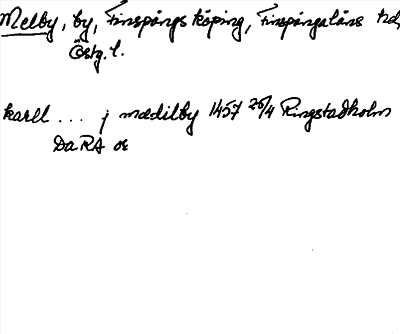 Melby, by, Finspångs köping, Finspångaläns hd,
Östg. l.
karll ... j mædilby 1457 26/4 Ringstadholm
DaRA or